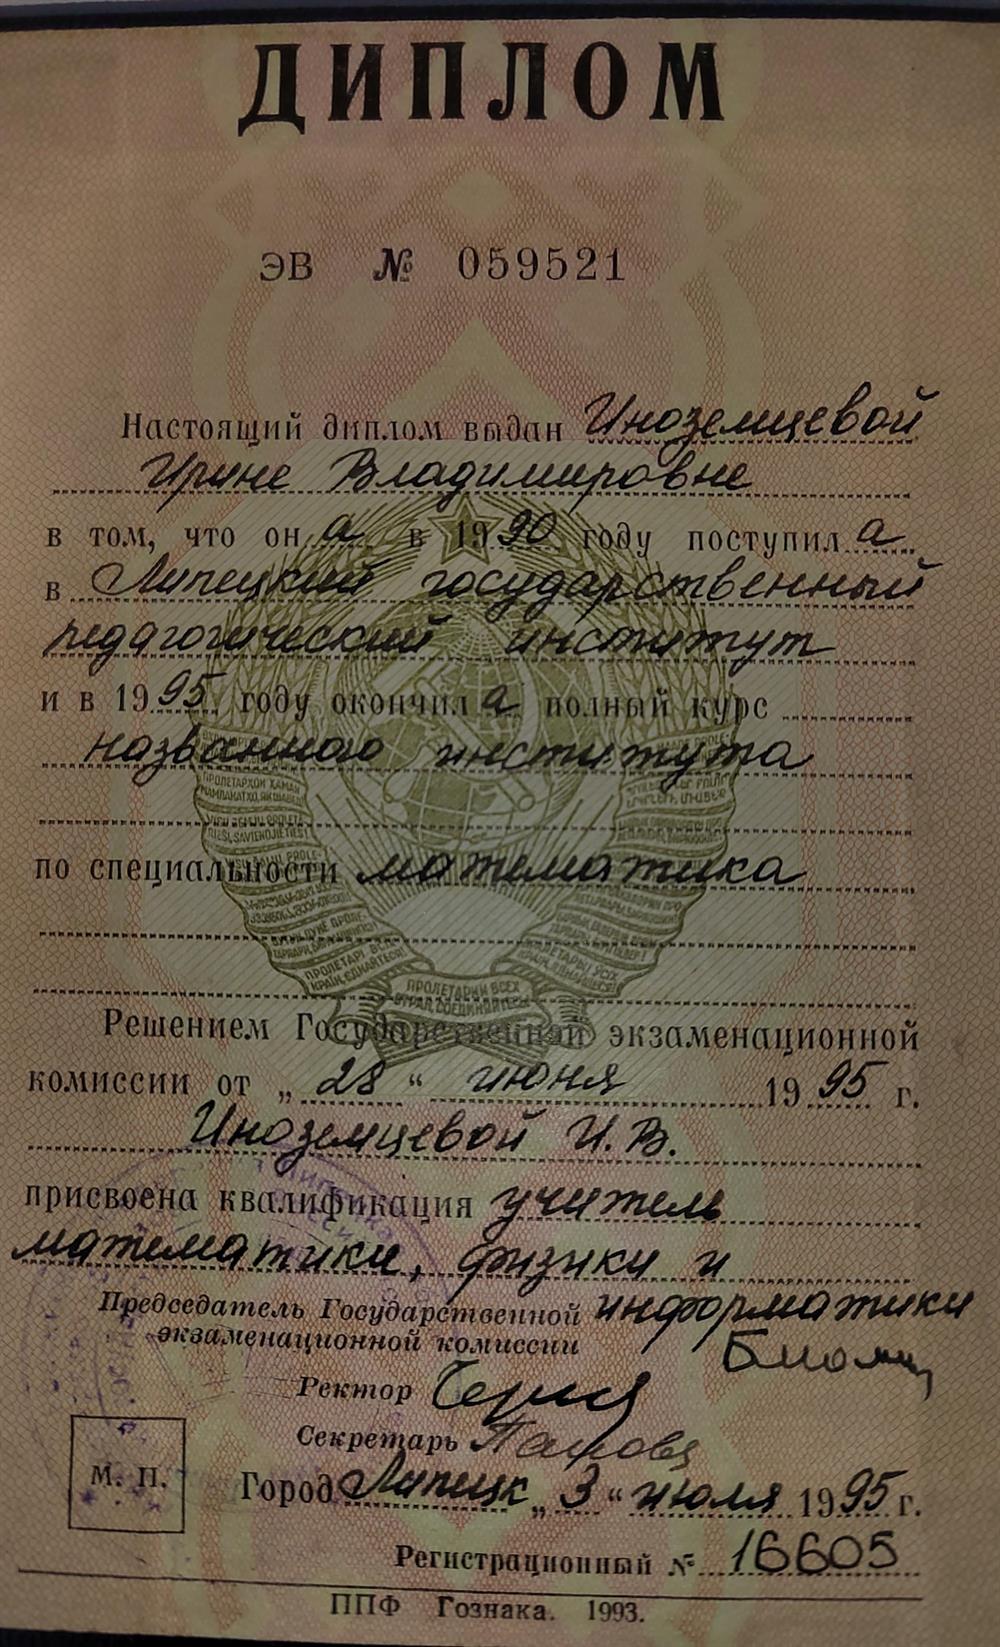 ДИПЛОМ
ЭВ № 059521
Настоящий диплом выдан Иноземцевой
Ирине Владимировне
в том, что он а в 1990 году поступил а
в Липецкий государственный
педагогический институт
и в 1995 году окончил а полный курс
названного института
по специальности математика
ПРОЛЕТАРИИ ВСЕХ
СТРАН, СОЕДИНЯЙТЕСЬ!
Решением Государственной экзаменационной
комиссии от „ 28 “ июня 1995 г.
Иноземцевой И.В.
присвоена квалификация учитель
математики, физики и
Председатель Государственной информатики
экзаменационной комиссии
Ректор
Секретарь
М. П.
Город Липецк „ 3 “ июля 1995 г.
Регистрационный № 16605
ППФ Гознака. 1993.